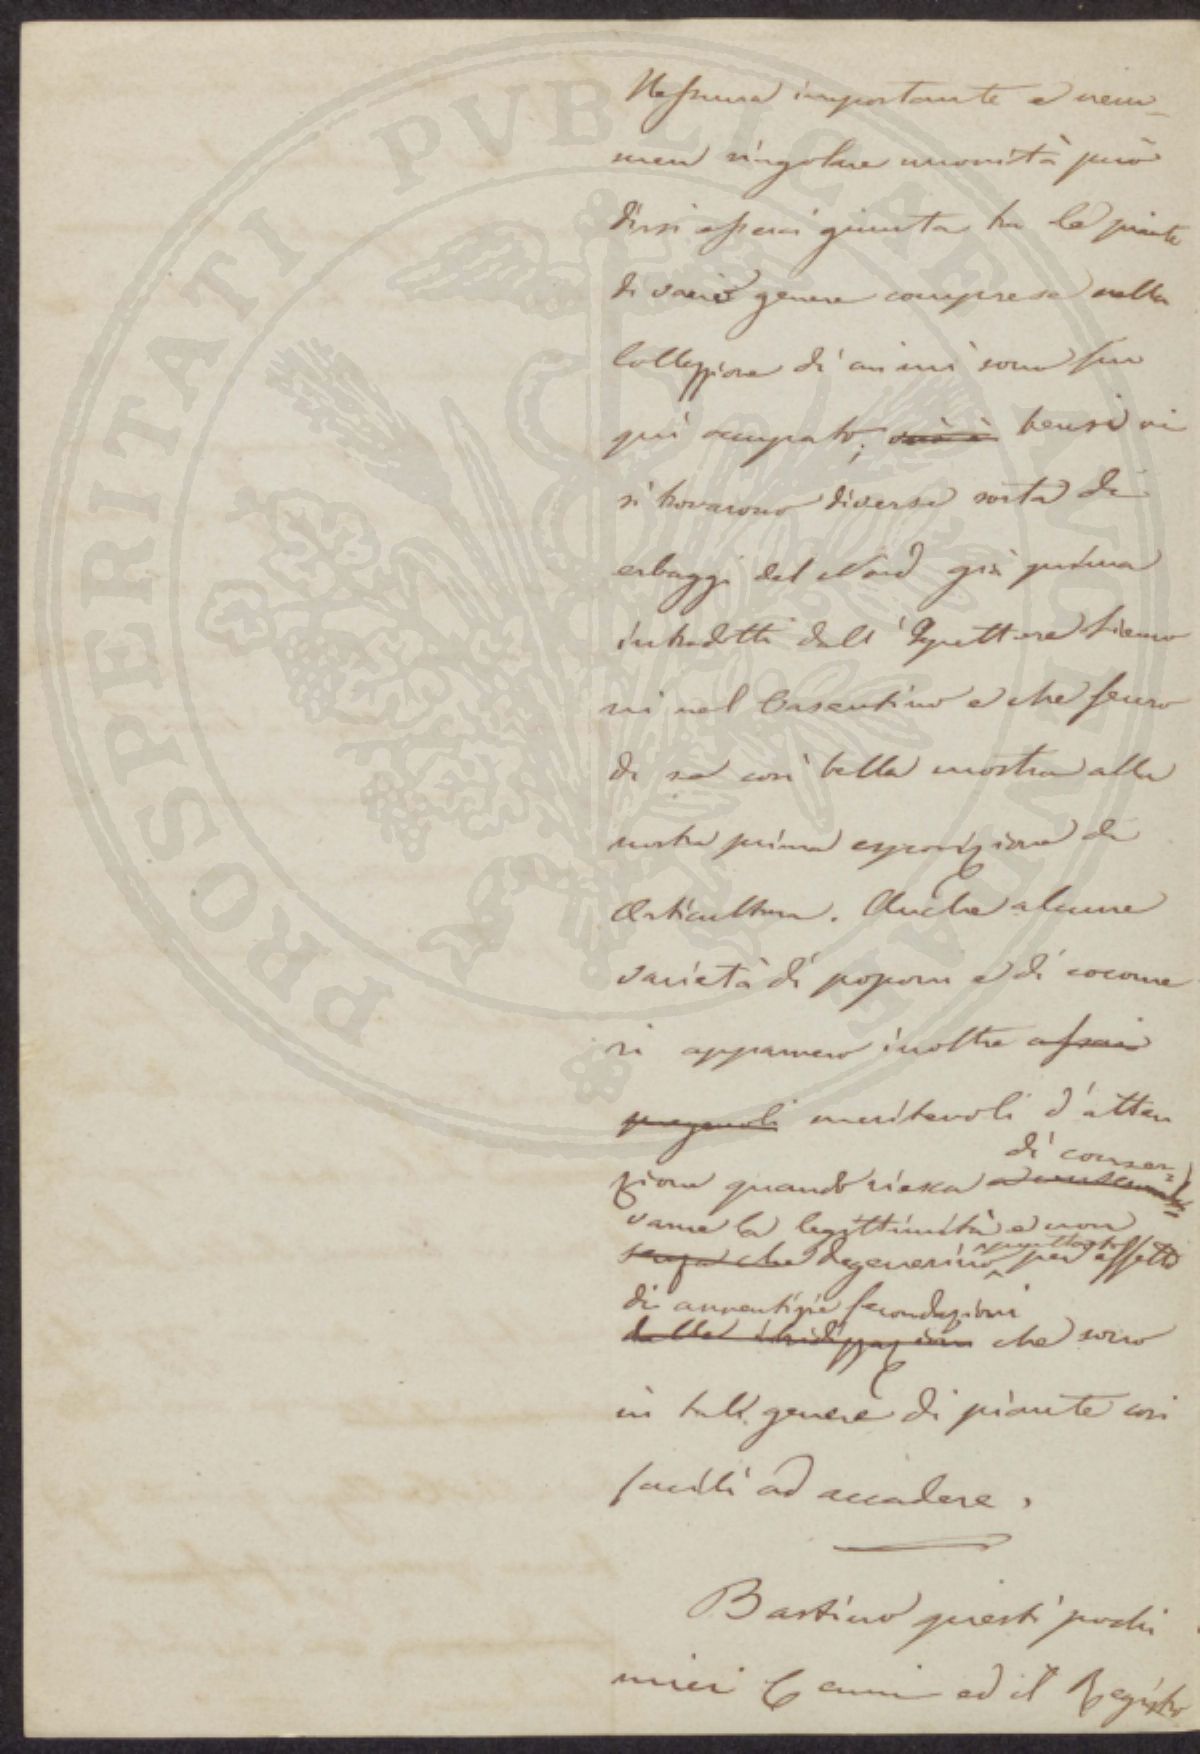 Nessuna importante e nem-
men singolare novità può
dirsi esserci giunta tra le piante
di vario genere comprese nella
Collezzione di cui mi sono fin
qui occupato; bensì vi
si trovarono diverse sorta di
erbaggi del Nord già prima
introdotti dall'Ispettore Siemo
ni nel Casentino e che fecero
di se così bella mostra alla
nostra prima esposizione di
Orticultura. Anche alcune
varietà di poponi e di cocome
ri apparvero inoltre assai
pregevoli meritevoli d'atten
zione quando riesca di conser-
varne la legittimità e non
senza che degenerino per effetto
di avventizie fecondazioni
dalla ibridizzazione che sono
in tali genere di piante così
facili ad accadere.
Bastino questi pochi
miei Cenni ed il Registro
PROSPERITATI PVBLICAE AVGENDAE